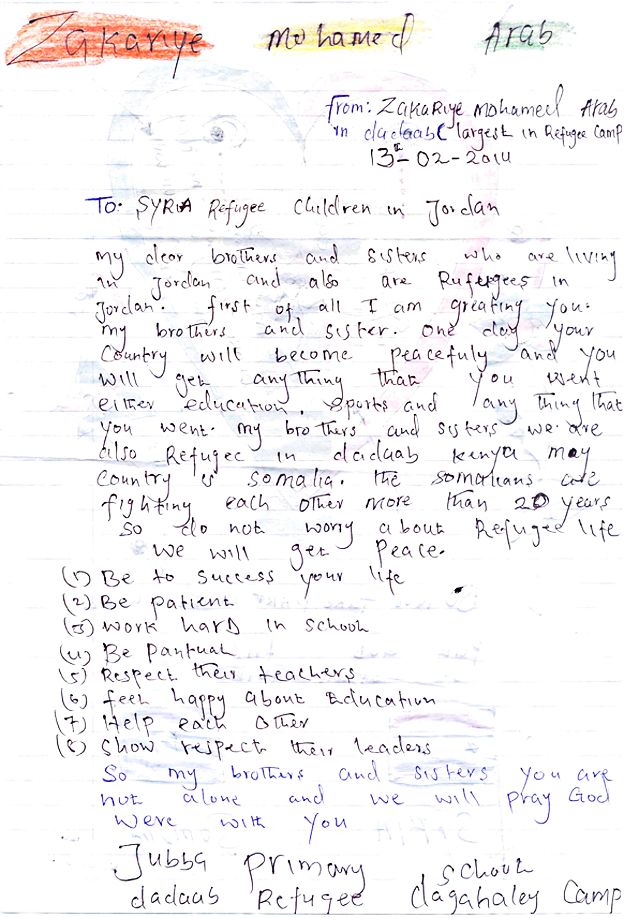 Zakariye mohamed Arab
from: Zakariye mohamed Arab
in dadaab largest in Refugee Camp
13th-02-2014
To: SYRIA Refugee children in Jordan
my dear brothers and sisters who are living
in Jordan and also are Rufergees in
Jordan. first of all I am greating you.
my brothers and sister. one day your
country will become peacefuly and you
will get anything that you went
either education, sports and any thing that
you went. my brothers and sisters we are
also Refugee in dadaab kenya may
country is somalia. the somalians are
fighting each other more than 20 years
so do not worry about Refugee life
we will get peace.
(1) Be to success your life
(2) Be patient
(3) work hard in school
(4) Be pantual
(5) Respect their teachers
(6) feel happy about Education
(7) Help each other
(8) show respect their leaders
So my brothers and sisters you are
not alone and we will pray God
were with you
Jubba primary school
dadaab Refugee dagahaley Camp